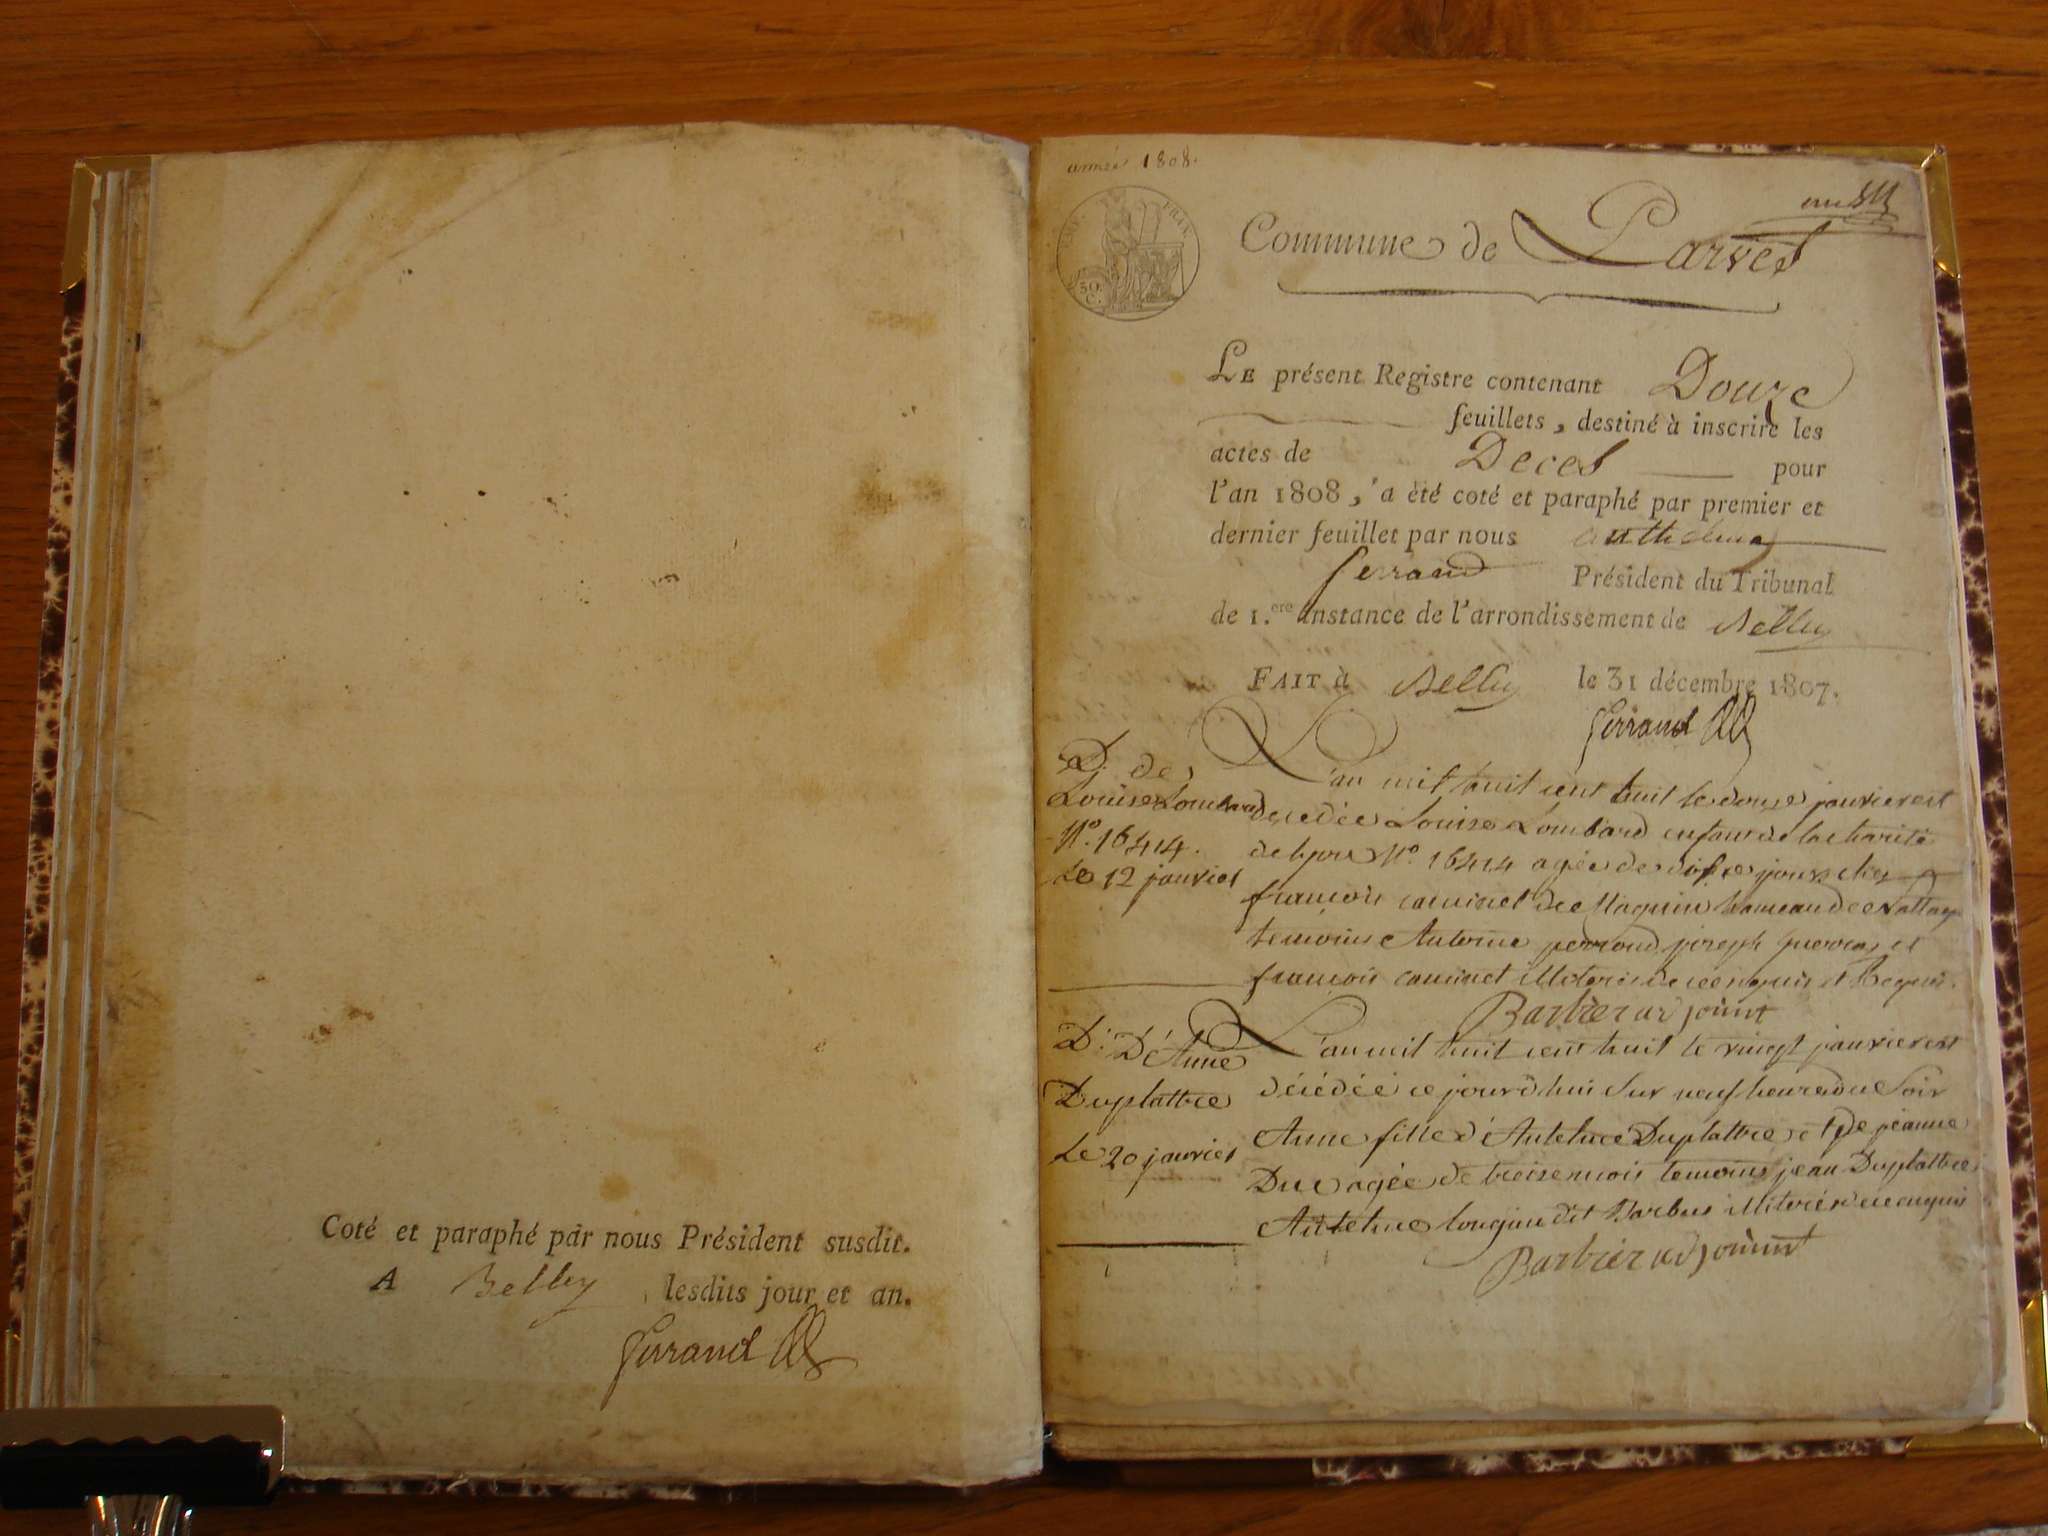 Coté et paraphé par nous Président susdit.
A Belley lesdits jour et an.
Ferrand
année 1808.
50
C.
Commune de Parves
LE présent Registre contenant Douze
feuillets, destiné à inscrire les
actes de Deces pour
l'an 1808, a été coté et paraphé par premier et
dernier feuillet par nous anthelme
ferrand Président du Tribunal
de 1.ere instance de l'arrondissement de Belley
FAIT à Belley le 31 décembre 1807.
Ferrand
D. de
Louise Lombard
N.o 16414.
Le 12 janvier
L'an mil huit cent huit le douze janvier est
decedée Louise Lombard enfant de la charité
de lyon N.o 16414 agée de jours chez
francois caminet de hameau de
temoins Antoine perroud joseph et
francois caminet de ce enquis et Requis.
Barbier adjoint
D. D'Anne
Duplattre
Le 20 janvier
L'an mil huit cent huit le vingt janvier est
décédée ce jourdhui sur neuf heures du soir
Anne fille d'Antelme Duplattre et de jeanne
Duc agée de treize mois temoins jean Duplattre
Antelme longin dit Barbus de ce enquis
Barbier adjoint